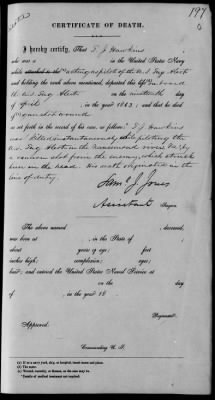 197
CERTIFICATE OF DEATH.
I hereby certify, That T. J. Hawkins
who was a in the United States Navy
acting as pilot of the U.S. Tug Alert
and holding the rank above mentioned, departed this life on board
U.S. Tug Alert on the nineteenth day
of April, in the year 1863; and that he died
of gunshot wound
as set forth in the record of his case, as follows: T. J. Hawkins
was killed instantaneously while piloting the
U.S. Tug Alert in the Nansemond river Va, by
a cannon shot from the enemy, which struck
him in the head. His death originated in the
line of duty.
Saml J. Jones
Assistant Surgeon.
The above named , deceased,
was born at , in the State of
about years of age; feet
inches high; complexion; eyes;
hair; and entered the United States Naval Service at
on the day
of , in the year 18
Paymaster.
Approved.
Commanding U. S.